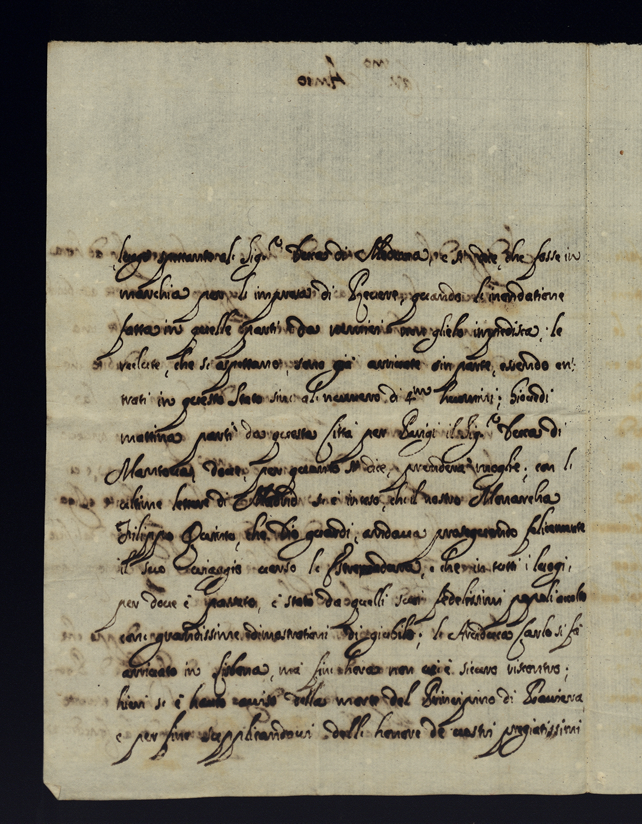 luogo il Sig.r Duca di Modena, e si dice, che fosse in
marchia per l'impresa di Revere, quando l'inondatione
fatta in quelle parti da nemici non glielo impedisca; le
reclute, che si aspettano, sono già arrivate in parte, essendo en-
trati in questo Stato sin al numero di 4m huomini; Giovedi
mattina partì da questa Città per Parigi il Sig.r Duca di
Mantova, dove, per quanto si dice, prenderà moglie; con le
ultime lettere di Madrid s'è inteso, che il nostro Monarcha
Filippo Quinto, che Dio guardi, andava proseguendo felicemente
il suo viaggio verso le Estremadura, e che in tutti i luogi,
per dove è passato, è stato da quelli suoi fedelissimi popoli accolto
con grandissime dimostrationi di giubilo; le Arciduca Carlo si fà
arrivato in Lisbona, mà fin hora non vi è sicuro riscontro;
hieri si è hauto aviso della morte del Principino di Baviera
e per fine supplicandovi dell' honore de vostri pregiatissimi